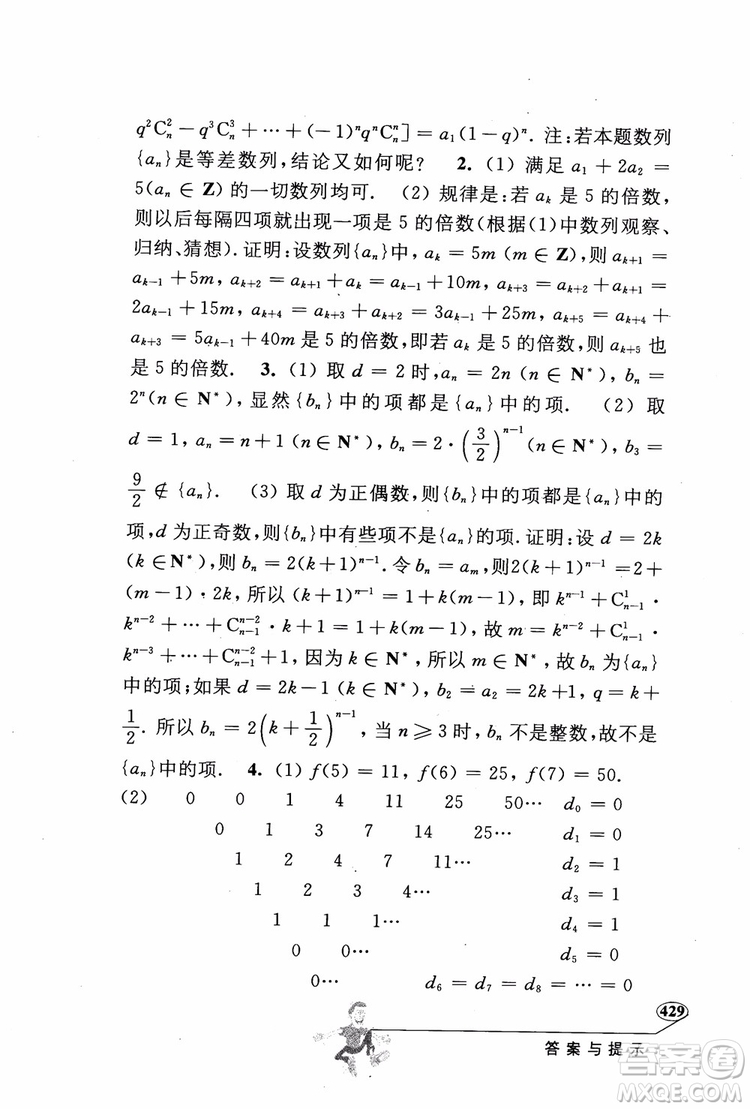 q²C²ₙ − q³C³ₙ + ⋯ + (−1)ⁿqⁿCⁿₙ] = a₁(1 − q)ⁿ. 注:若本题数列
{aₙ}是等差数列,结论又如何呢? 2. (1) 满足 a₁ + 2a₂ =
5(aₙ ∈ Z)的一切数列均可. (2) 规律是:若 aₖ 是 5 的倍数,
则以后每隔四项就出现一项是 5 的倍数(根据(1)中数列观察、
归纳、猜想). 证明:设数列{aₙ}中, aₖ = 5m (m ∈ Z),则 aₖ₊₁ =
aₖ₋₁ + 5m, aₖ₊₂ = aₖ₊₁ + aₖ = aₖ₋₁ + 10m, aₖ₊₃ = aₖ₊₂ + aₖ₊₁ =
2aₖ₋₁ + 15m, aₖ₊₄ = aₖ₊₃ + aₖ₊₂ = 3aₖ₋₁ + 25m, aₖ₊₅ = aₖ₊₄ +
aₖ₊₃ = 5aₖ₋₁ + 40m 是 5 的倍数,即若 aₖ 是 5 的倍数,则 aₖ₊₅ 也
是 5 的倍数. 3. (1) 取 d = 2 时, aₙ = 2n (n ∈ N*), bₙ =
2ⁿ(n ∈ N*),显然{bₙ}中的项都是{aₙ}中的项. (2) 取
d = 1, aₙ = n + 1 (n ∈ N*), bₙ = 2 · (3/2)ⁿ⁻¹ (n ∈ N*), b₃ =
9/2 ∉ {aₙ}. (3) 取 d 为正偶数,则{bₙ}中的项都是{aₙ}中的
项, d 为正奇数,则{bₙ}中有些项不是{aₙ}的项. 证明:设 d = 2k
(k ∈ N*),则 bₙ = 2(k + 1)ⁿ⁻¹. 令 bₙ = aₘ, 2(k + 1)ⁿ⁻¹ = 2 +
(m − 1) · 2k, 所以 (k + 1)ⁿ⁻¹ = 1 + k(m − 1), 即 kⁿ⁻¹ + C¹ₙ₋₁ ·
kⁿ⁻² + ⋯ + Cⁿ⁻²ₙ₋₁ · k + 1 = 1 + k(m − 1),故 m = kⁿ⁻² + C¹ₙ₋₁ ·
kⁿ⁻³ + ⋯ + Cⁿ⁻²ₙ₋₁ + 1, 因为 k ∈ N*, 所以 m ∈ N*, 故 bₙ 为{aₙ}
中的项;如果 d = 2k − 1 (k ∈ N*), b₂ = a₂ = 2k + 1, q = k +
1/2. 所以 bₙ = 2(k + 1/2)ⁿ⁻¹, 当 n ⩾ 3 时, bₙ 不是整数,故不是
{aₙ}中的项. 4. (1) f(5) = 11, f(6) = 25, f(7) = 50.
(2) 0 0 1 4 11 25 50⋯ d₀ = 0
0 1 3 7 14 25⋯ d₁ = 0
1 2 4 7 11⋯ d₂ = 1
1 2 3 4⋯ d₃ = 1
1 1 1⋯ d₄ = 1
0 0⋯ d₅ = 0
0⋯ d₆ = d₇ = d₈ = ⋯ = 0
429
答案与提示
答案圈
MXQE.COM